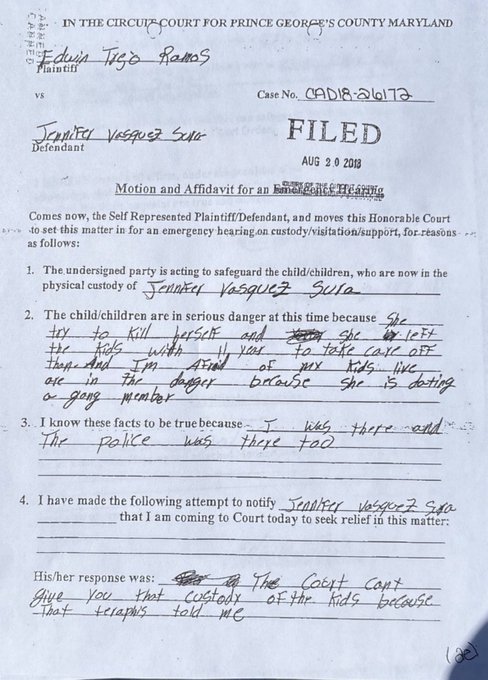 IN THE CIRCUIT COURT FOR PRINCE GEORGE'S COUNTY MARYLAND
Edwin Trejo Ramos
Plaintiff
vs
Case No. CAD18-26172
Jennifer Vasquez Sura
Defendant
FILED
AUG 20 2018
Motion and Affidavit for an Emergency Hearing
Comes now, the Self Represented Plaintiff/Defendant, and moves this Honorable Court
to set this matter in for an emergency hearing on custody/visitation/support, for reasons
as follows:
1. The undersigned party is acting to safeguard the child/children, who are now in the
physical custody of Jennifer Vasquez Sura
2. The child/children are in serious danger at this time because She
try to kill herself and she left
the kids with 11 year to take care off
them. And I'm Afraid of my kids live
are in the danger because she is dating
a gang member
3. I know these facts to be true because I was there and
The police was there too
4. I have made the following attempt to notify Jennifer Vasquez Sura
that I am coming to Court today to seek relief in this matter:
His/her response was: The Court cant
give you that custody of the kids because
that teraphis told me